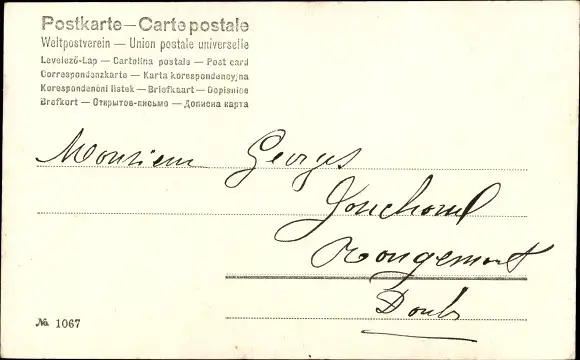 Postkarte — Carte postale
Weltpostverein — Union postale universelle
Levelező-Lap — Cartolina postale — Post card
Correspondenzkarte — Karta korespondencyjna
Korespondenční lístek — Briefkaart — Dopisnice
Brefkort — Открытое-письмо — Дописна карта
Monsieur Georges
Rougemont
Doubs
№ 1067